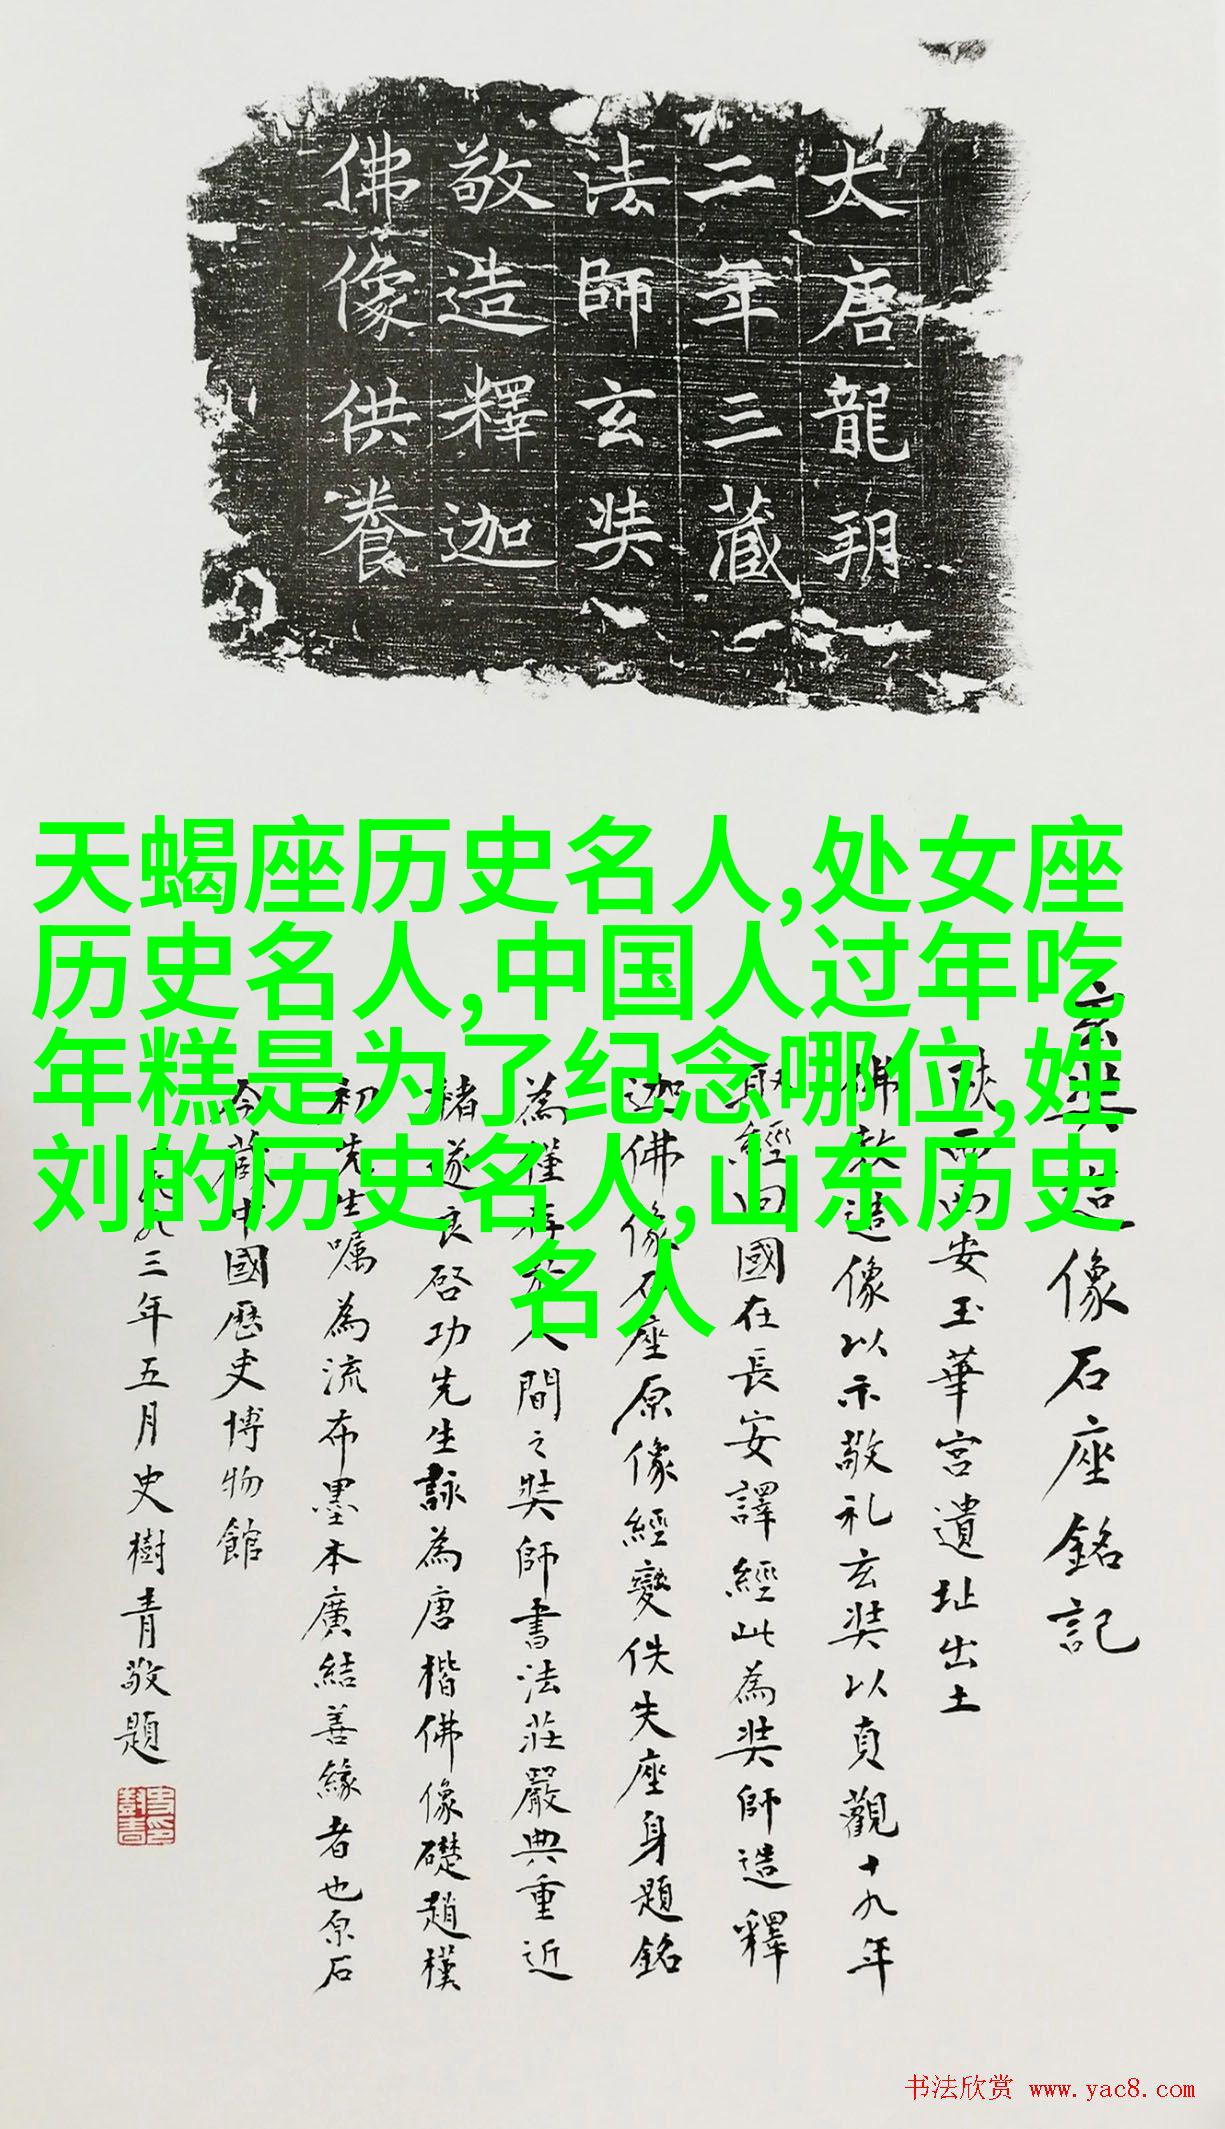 大唐龍朔
二年三藏
法師玄奘
敬造釋迦
佛像供養
天蝎座历史名人,处女座
历史名人,中国人过年吃
年糕是为了纪念哪位,姓
刘的历史名人,山东历史
名人
玄奘造像石座銘記
陝西西安玉華宮遺址出土
佛教造像以示敬礼玄奘以貞觀十九年
取經回國在長安譯經此為奘師造釋
迦佛像石座原像經變佚失座身題銘
為僅存於人間之奘師書法莊嚴典重近
褚遂良啓功先生詠為唐楷佛像礎趙樸
初先生囑為流布墨本廣結善緣者也原石
今藏中國歷史博物館
一九九三年五月史樹青敬題
书法欣赏 www.yac8.com